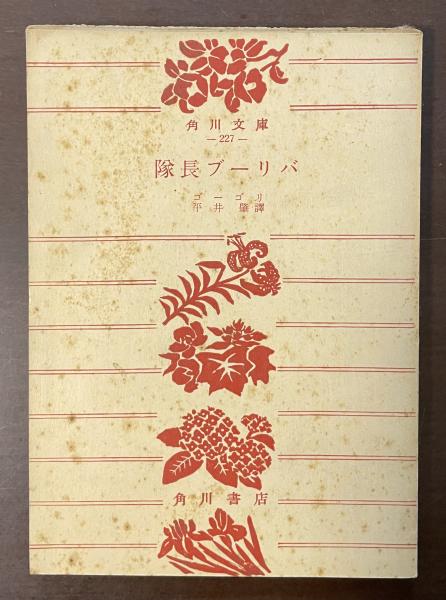 角川文庫
—227—
隊長ブーリバ
ゴーゴリ
平井肇譯
角川書店